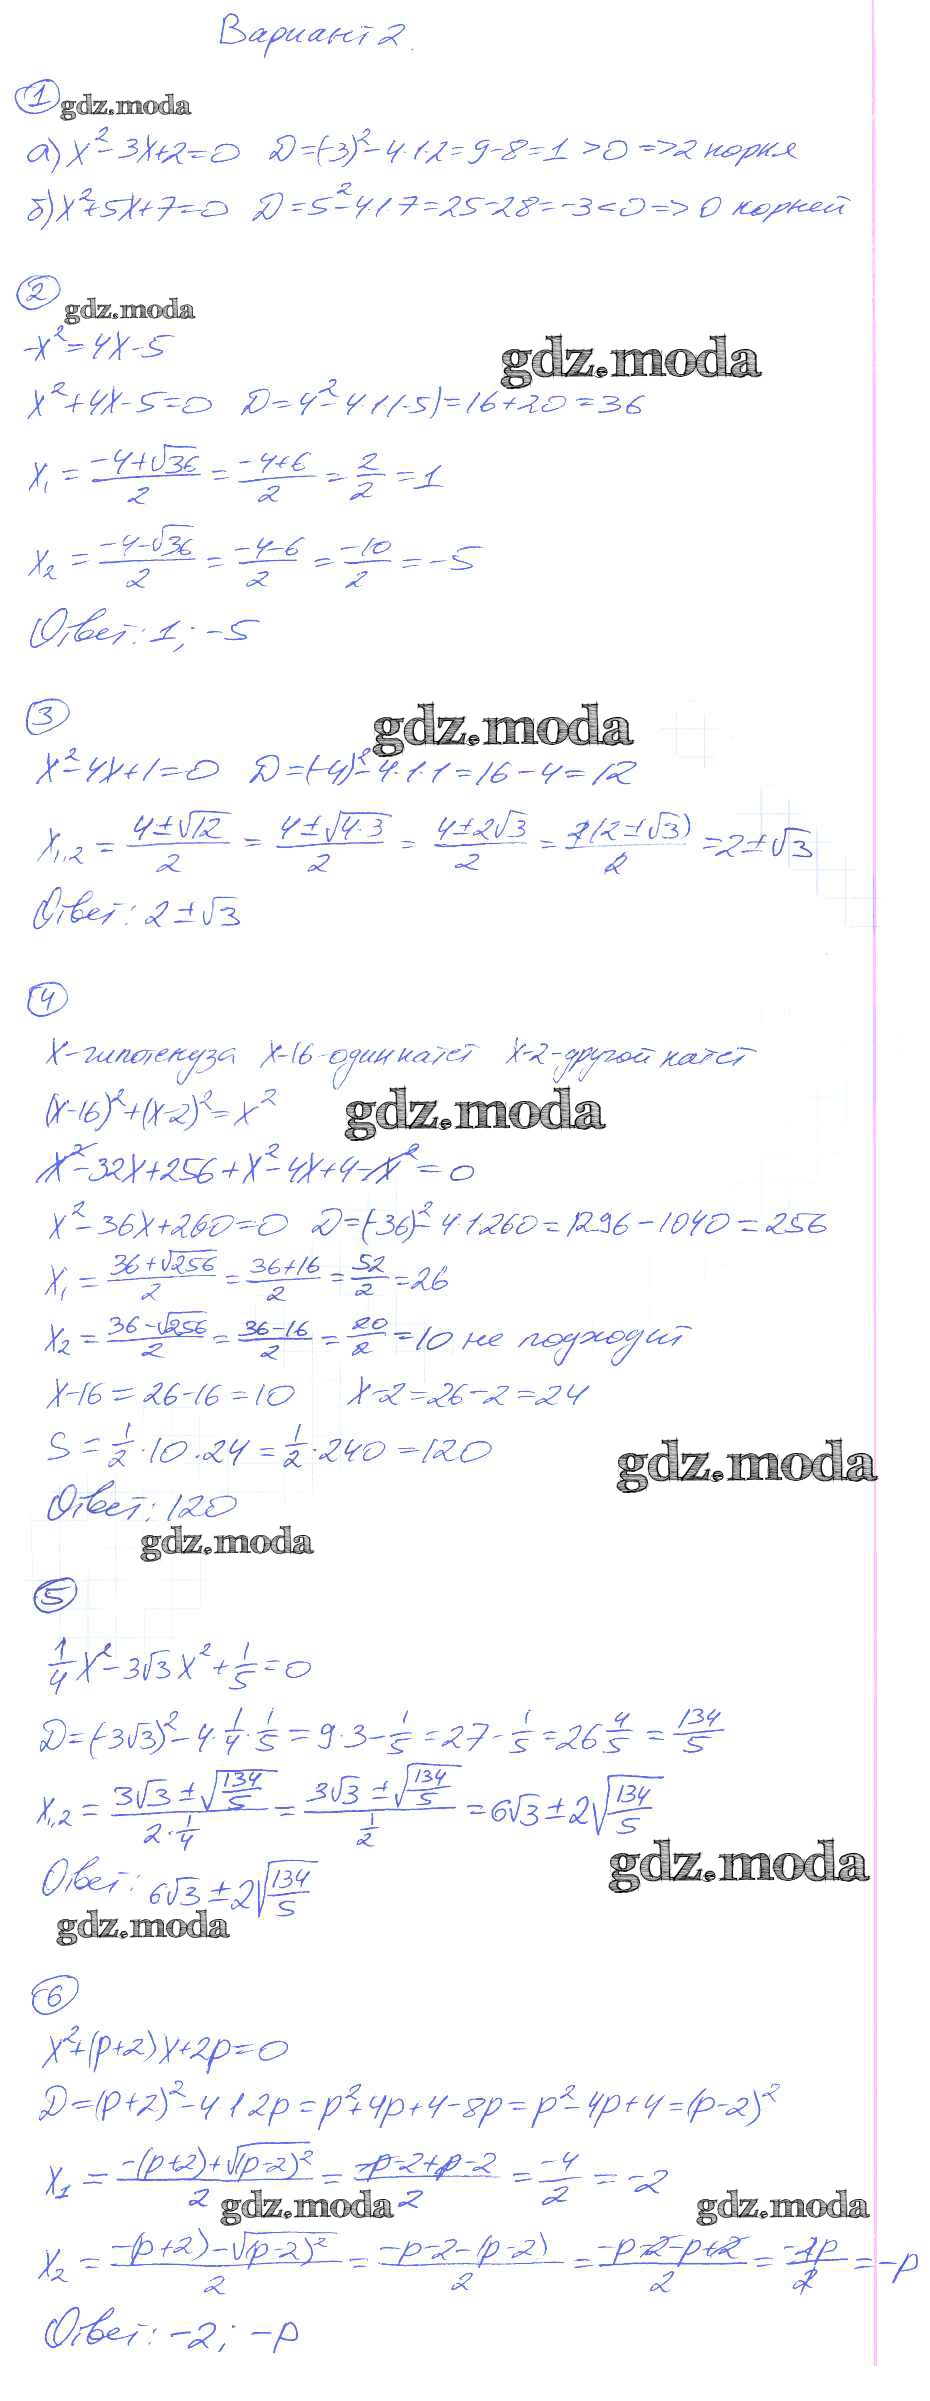 Вариант 2.
1 gdz.moda
а) x² - 3x + 2 = 0 D = (-3)² - 4·1·2 = 9 - 8 = 1 > 0 => 2 корня
б) x² + 5x + 7 = 0 D = 5² - 4·1·7 = 25 - 28 = -3 < 0 => 0 корней
2 gdz.moda
-x² = 4x - 5 gdz.moda
x² + 4x - 5 = 0 D = 4² - 4·1·(-5) = 16 + 20 = 36
x₁ = (-4+√36)/2 = (-4+6)/2 = 2/2 = 1
x₂ = (-4-√36)/2 = (-4-6)/2 = -10/2 = -5
Ответ: 1; -5
3 gdz.moda
x² - 4x + 1 = 0 D = (-4)² - 4·1·1 = 16 - 4 = 12
x₁,₂ = (4±√12)/2 = (4±√(4·3))/2 = (4±2√3)/2 = 2(2±√3)/2 = 2±√3
Ответ: 2±√3
4
x - гипотенуза x-16 - один катет x-2 - другой катет
(x-16)² + (x-2)² = x² gdz.moda
x² - 32x + 256 + x² - 4x + 4 - x² = 0
x² - 36x + 260 = 0 D = (-36)² - 4·1·260 = 1296 - 1040 = 256
x₁ = (36+√256)/2 = (36+16)/2 = 52/2 = 26
x₂ = (36-√256)/2 = (36-16)/2 = 20/2 = 10 не подходит
x-16 = 26-16 = 10 x-2 = 26-2 = 24
S = 1/2 · 10 · 24 = 1/2 · 240 = 120 gdz.moda
Ответ: 120
gdz.moda
5
1/4 x² - 3√3 x² + 1/5 = 0
D = (-3√3)² - 4 · 1/4 · 1/5 = 9·3 - 1/5 = 27 - 1/5 = 26 4/5 = 134/5
x₁,₂ = (3√3 ± √(134/5))/(2·1/4) = (3√3 ± √(134/5))/(1/2) = 6√3 ± 2√(134/5)
gdz.moda
Ответ: 6√3 ± 2√(134/5)
gdz.moda
6
x² + (p+2)x + 2p = 0
D = (p+2)² - 4·1·2p = p² + 4p + 4 - 8p = p² - 4p + 4 = (p-2)²
x₁ = (-(p+2)+√(p-2)²)/2 = (-p-2+p-2)/2 = -4/2 = -2
gdz.moda gdz.moda
x₂ = (-(p+2)-√(p-2)²)/2 = (-p-2-(p-2))/2 = (-p-2-p+2)/2 = -2p/2 = -p
Ответ: -2; -p